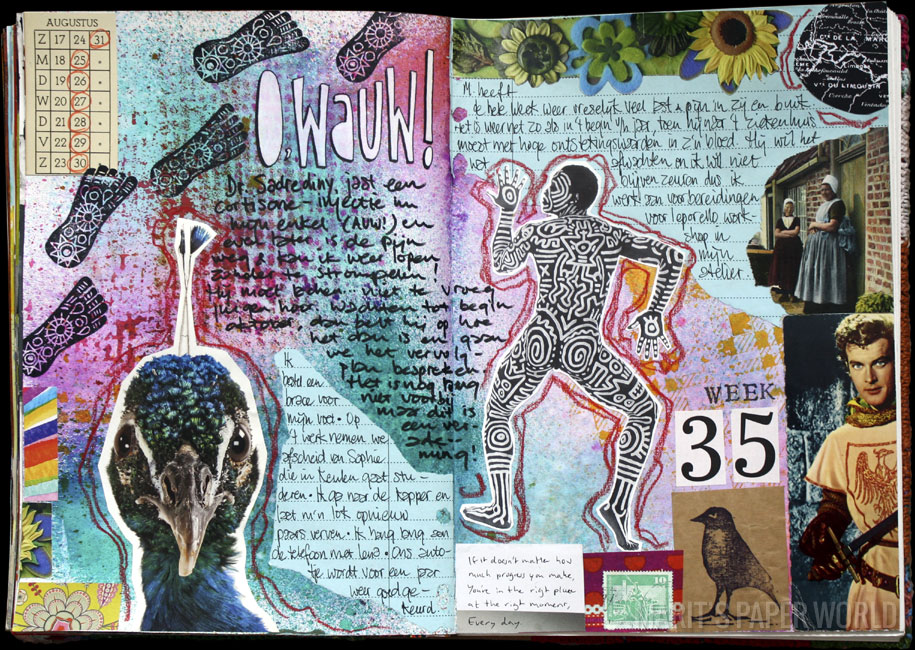 AUGUSTUS
Z 17 24 31
M 18 25 •
D 19 26 •
W 20 27 •
D 21 28 •
V 22 29 •
Z 23 30 •
O, WAUW!
Dr. Sadrediny jast een
cortisone-injectie in
mijn enkel (AUW!) en
even later is de pijn
weg & kan ik weer lopen
zonder te strompelen!
Hij moet lachen. Niet te vroeg
juichen hoor. Wachten tot begin
oktober, dan belt hij op hoe
het dan is en gaan
we het vervolg-
plan bespreken.
Het is nog lang
niet voorbij
maar dit is
een ver-
ade-
ming!
Ik
bestel een
brace voor
mijn voet • Op
't werk nemen we
afscheid van Sophie
die in Keulen gaat stu-
deren • Ik ga naar de kapper en
laat m'n lok opnieuw
paars verven • Ik hang lang aan
de telefoon met Lenz • Ons auto-
tje wordt voor een jaar
weer goedge-
keurd
M. heeft
de hele week weer vreselijk veel last & pijn in zij en buik.
Het is weer net zo als in 't begin v/h jaar, toen hij naar 't ziekenhuis
moest met hoge ontstekingswaarden in z'n bloed. Hij wil het
wat afwachten en ik wil niet
blijven zeuren dus ik
werk aan voorbereidingen
voor leporello work-
shop in
mijn
atelier.
Cte DE LA MARC
Limoges
Vte DU LIMOUSIN
WEEK
35
If it doesn't matter how
much progress you make,
You're in the right place
at the right moment,
Every day.
10
MARIT'S PAPER WORLD